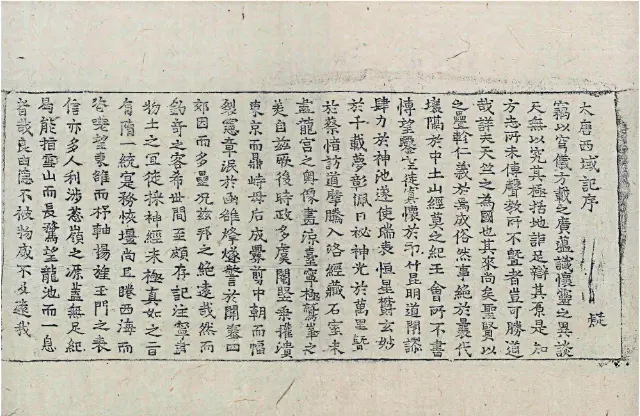 大唐西域記序
疑
竊以穹儀方載之廣蘊識懷靈之異談
天無以究其極括地詎足辯其原是知
方志所未傳聲教所不暨者豈可勝道
哉詳夫天竺之為國也其來尚矣聖賢以
之疊軫仁義於焉成俗然事絕於曩代
壤隔於中土山經莫之紀王會所不書
博望鑿空徒寘懷於邛竹昆明道閉謬
肆力於神池遂使瑞表恒星鬱玄妙
於千載夢彰佩日秘神光於萬里暨
於蔡愔訪道摩騰入洛經藏石室未
盡龍宮之奧像畫涼臺寧極鷲峯之
美自茲厥後時政多虞閹豎乘權潰
東京而鼎峙母后成釁剪中朝而幅
裂憲章泯於函雒烽燧警於關塞四
郊因而多壘况茲邦之絕遠哉然而
鈎奇之客希世間至頗存記注寧盡
物土之宜徒採神經未極真如之旨
有隋一統寔務恢壃尚且睠西海而
咨嗟望東雒而杼軸揚旌玉門之表
信亦多人利涉葱嶺之源蓋無足紀
曷能指雪山而長騖望龍池而一息
者哉良由德不被物威不及遠我